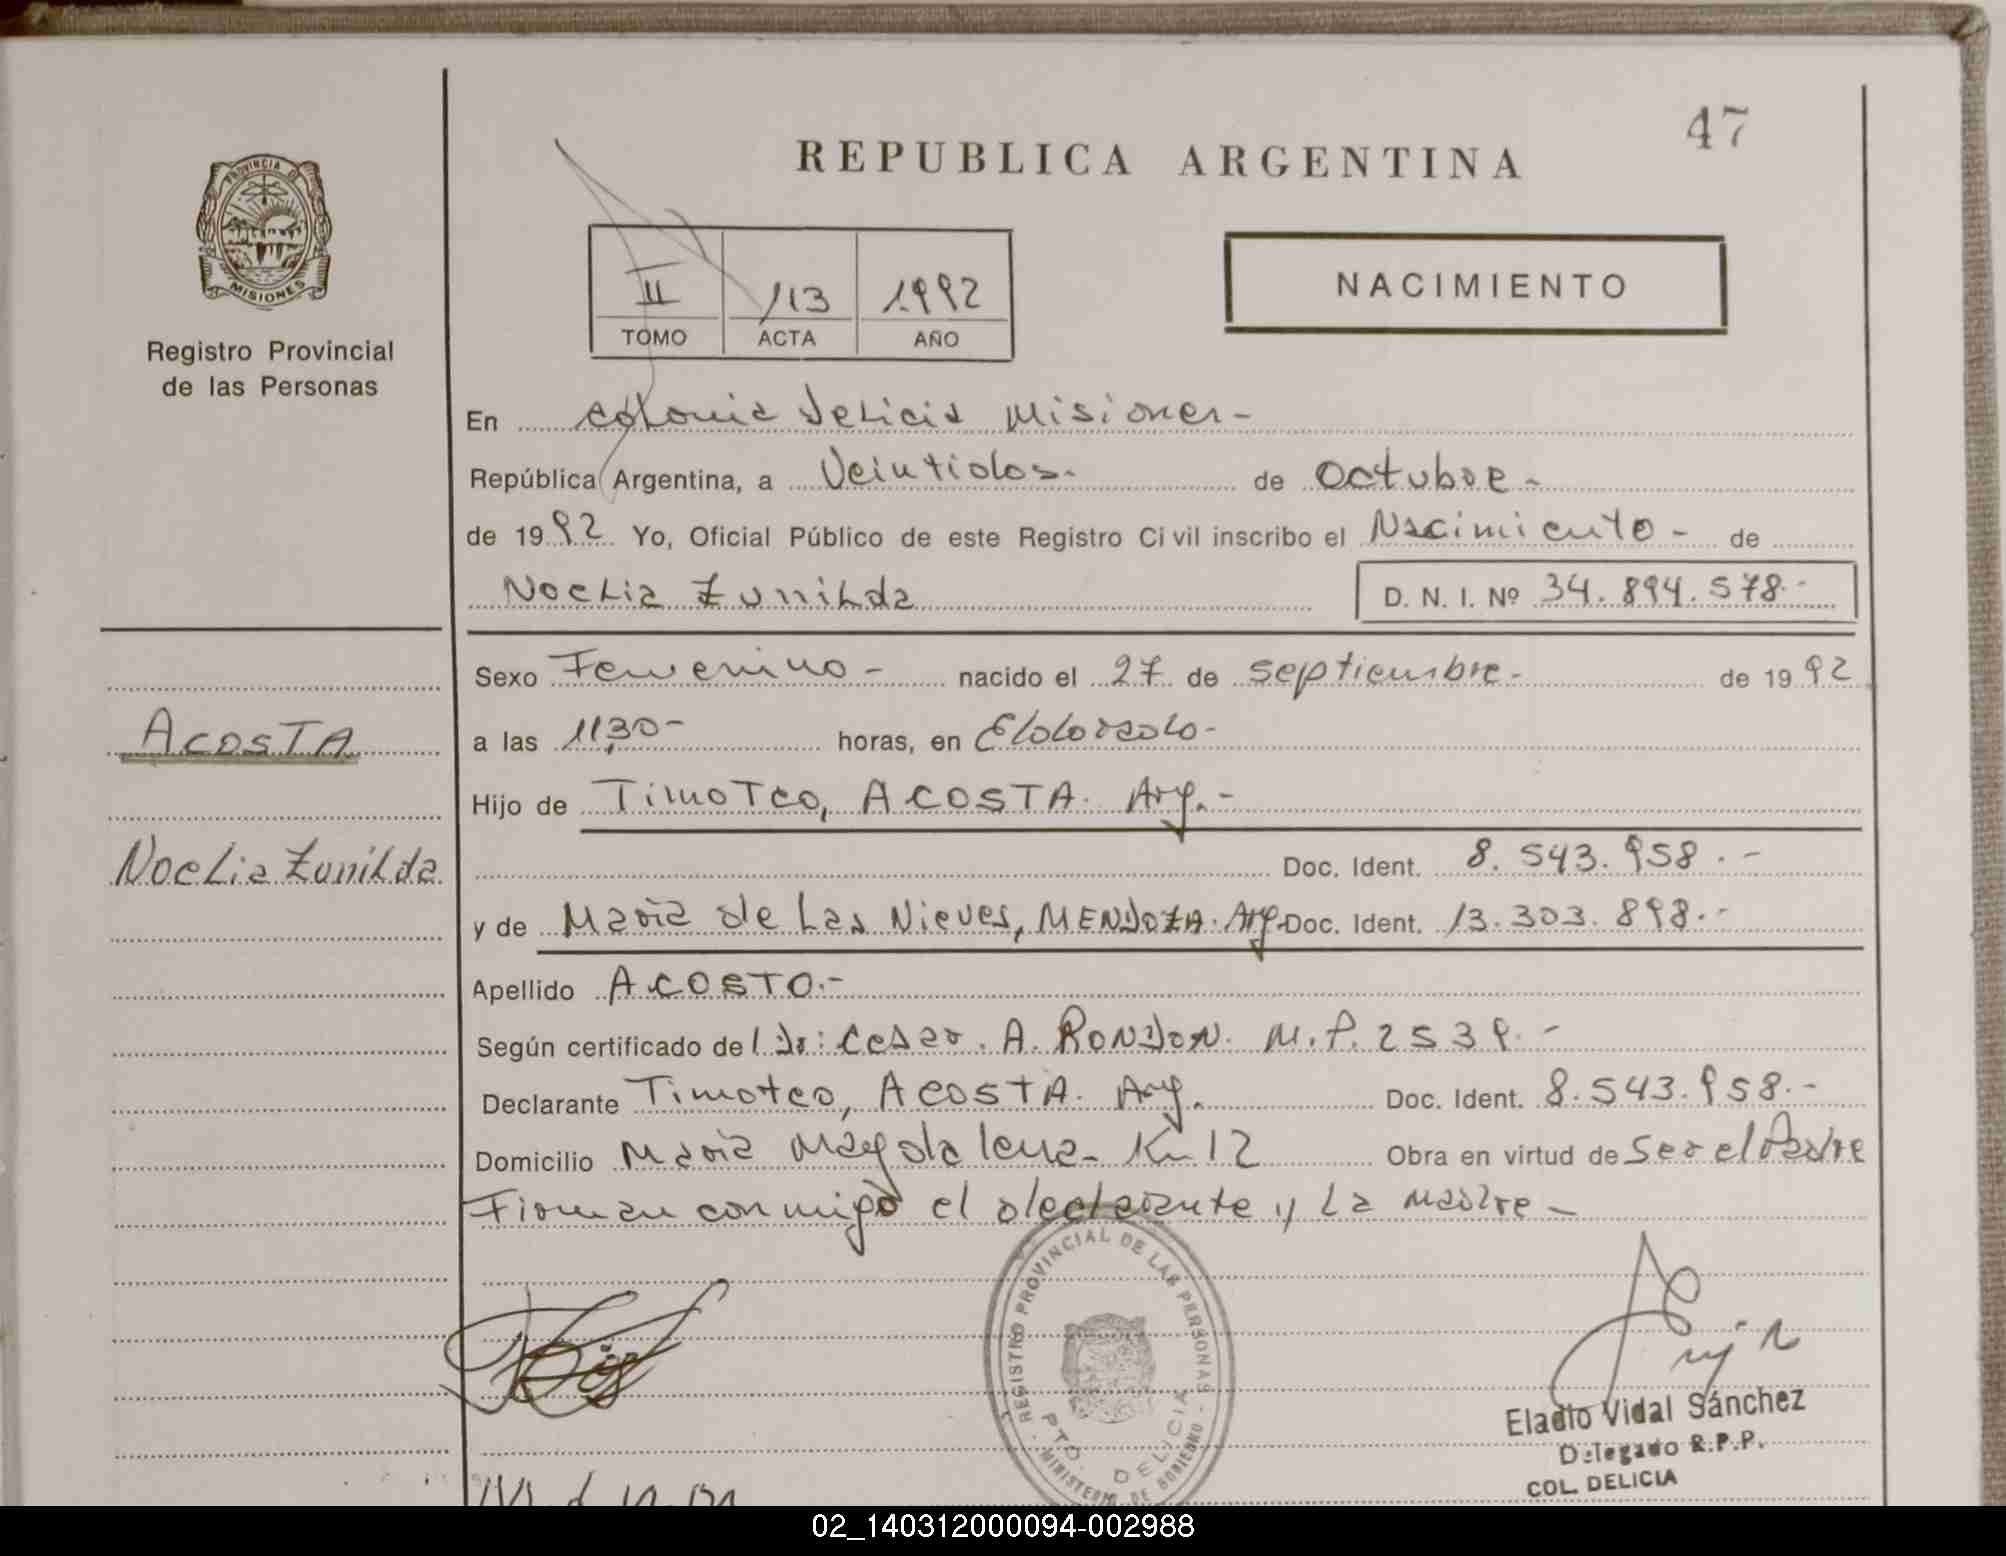 47
REPUBLICA ARGENTINA
PROVINCIA DE
MISIONES
Registro Provincial
de las Personas
II 113 1992
TOMO ACTA AÑO
NACIMIENTO
En Colonia Delicia Misiones-
República Argentina, a Veintidos- de Octubre-
de 1992 Yo, Oficial Público de este Registro Civil inscribo el Nacimiento- de
Noelia Zunilda D. N. I. Nº 34.894.578.-
Sexo Femenino- nacido el 27 de septiembre- de 1992
ACOSTA
a las 11,30- horas, en Eldorado-
Hijo de Timoteo, ACOSTA. Arg.-
Noelia Zunilda
Doc. Ident. 8.543.958.-
y de Maria de Las Nieves, MENDOZA. Arg. Doc. Ident. 13.303.898.-
Apellido ACOSTO.-
Según certificado del Dr: Cesar. A. RONDON. M.P. 2539.-
Declarante Timoteo, ACOSTA. Arg. Doc. Ident. 8.543.958.-
Domicilio Maria Magdalena- Km 12 Obra en virtud de Ser el Padre
Firman conmigo el declarante y La madre-
REGISTRO PROVINCIAL DE LAS PERSONAS
PTO. DELICIA
MINISTERIO DE GOBIERNO
Eladio Vidal Sánchez
Delegado R.P.P.
COL. DELICIA
02_140312000094-002988